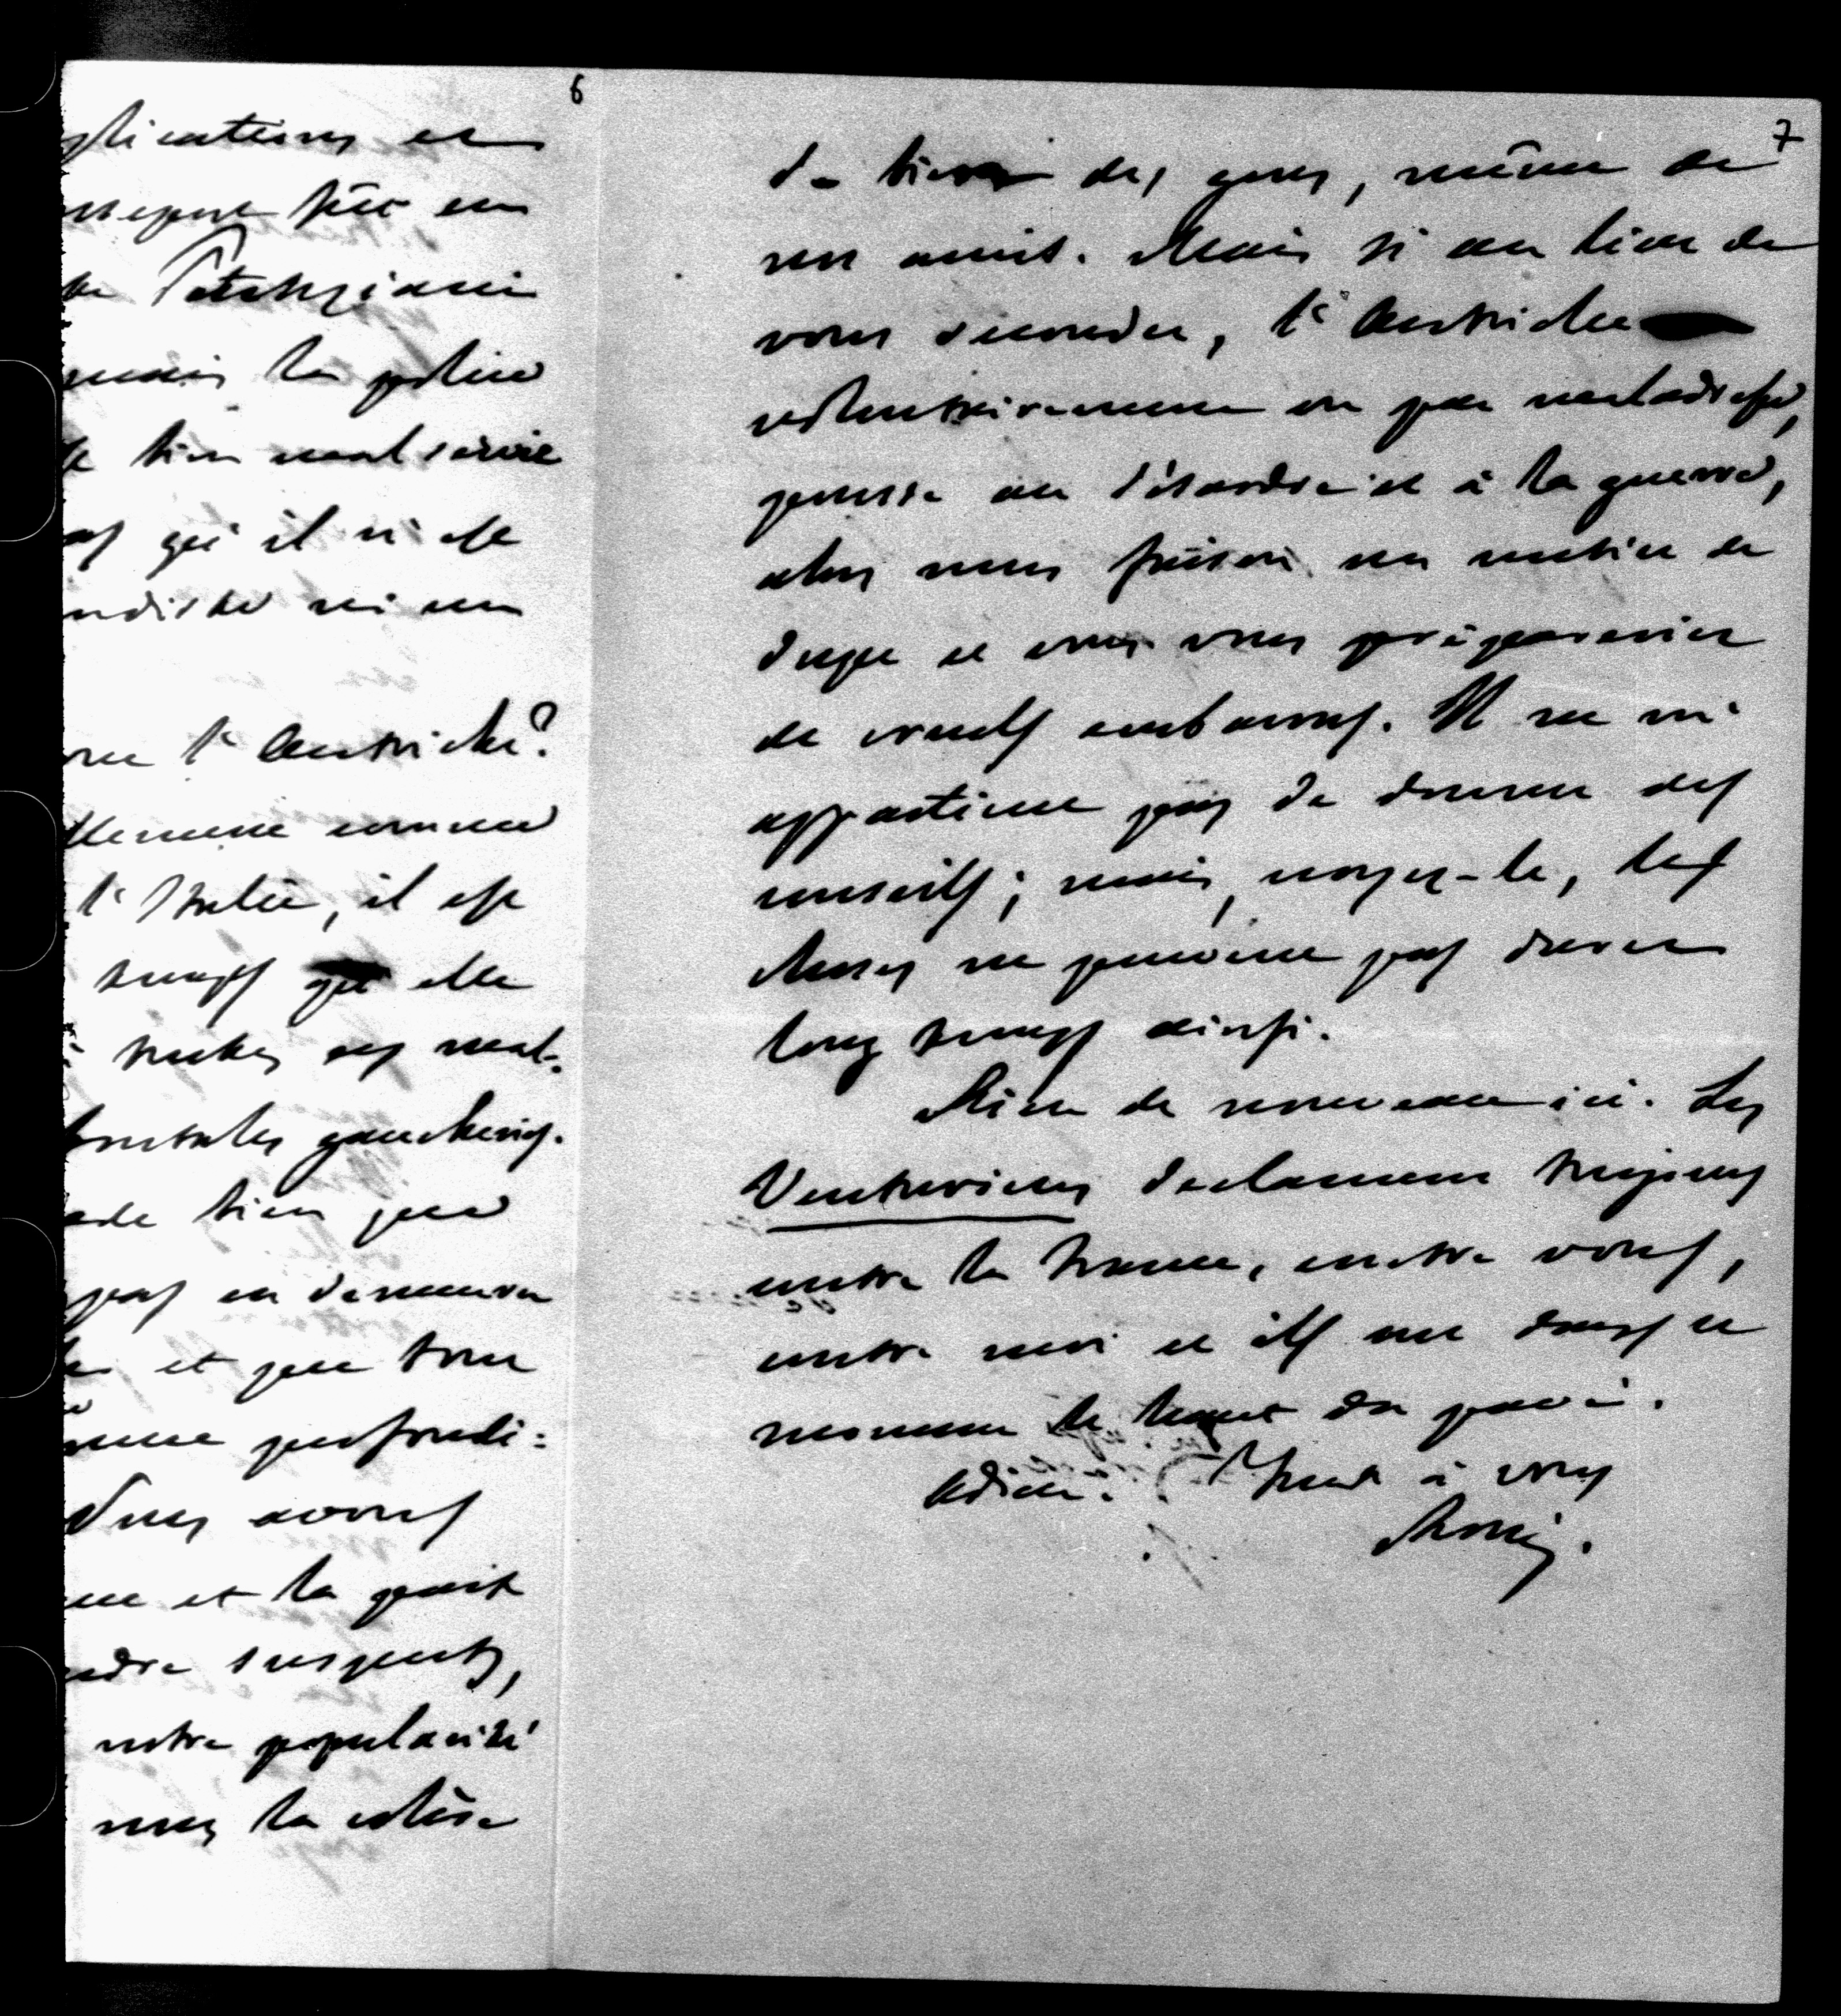 6
plications et
de Patrizzi
mais la police
de bien mal servie
pas qu'il n'est
ni un
l'Autriche?
tellement comme
l'Italie, il est
temps qu'elle
toutes ses mal-
brutales gaucheries.
bien que
pas en demeure
et que tout
perfondi:
Nous avons
et la part
suspects,
notre popularité
nous la colère
7
de bien des gens, même de
nos amis. Mais si au lieu de
vous seconder, l'Autriche
volontairement ou par maladresse,
pousse au désordre et à la guerre,
alors nous faisons un métier de
dupe et vous vous prépareriez
de cruels embarras. Il ne m'
appartient pas de donner des
conseils; mais, croyez-le, les
choses ne peuvent pas durer
long temps ainsi.
Rien de nouveau ici. Les
Venturiens déclament toujours
contre la France, contre vous,
contre moi et ils ont dans ce
moment le haut du pavé.
Adieu. Tout à vous
Rossi.